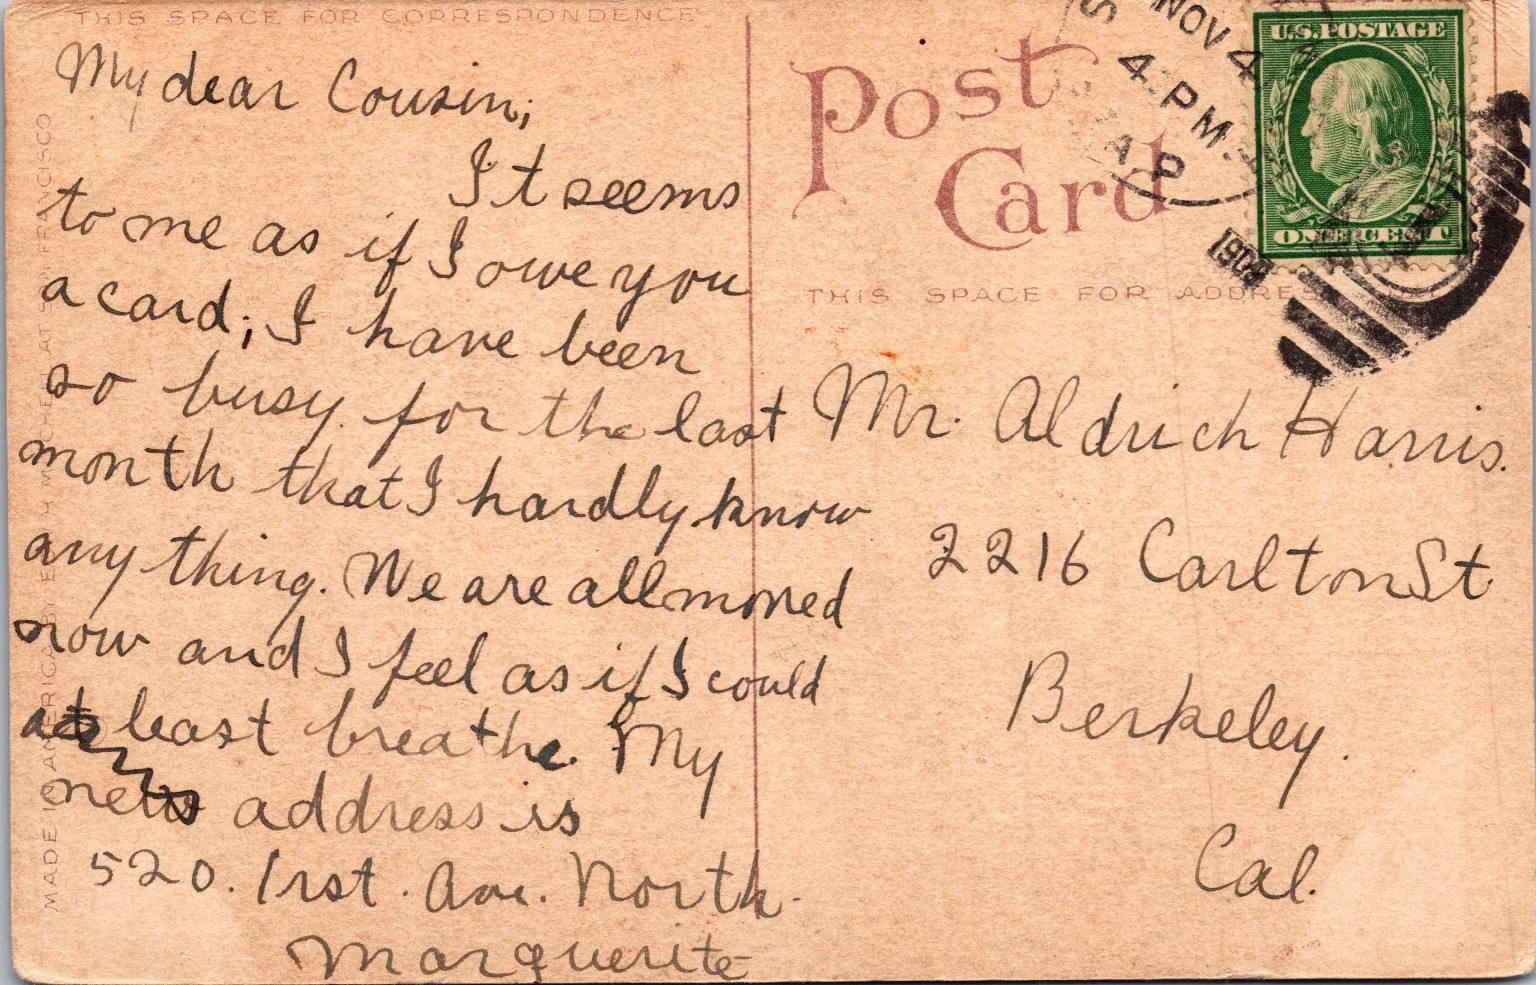 THIS SPACE FOR CORRESPONDENCE
My dear Cousin,
It seems
to me as if I owe you
a card; I have been
so busy for the last
month that I hardly know
any thing. We are all moved
now and I feel as if I could
at least breathe. My
new address is
520. 1rst. Ave. North.
Marguerite
MADE IN AMERICA BY E. H. MITCHELL AT SAN FRANCISCO
Post
Card
NOV 4
4 PM
1909
U.S. POSTAGE
ONE CENT
THIS SPACE FOR ADDRESS
Mr. Aldrich Harris.
2216 Carlton St
Berkeley.
Cal.